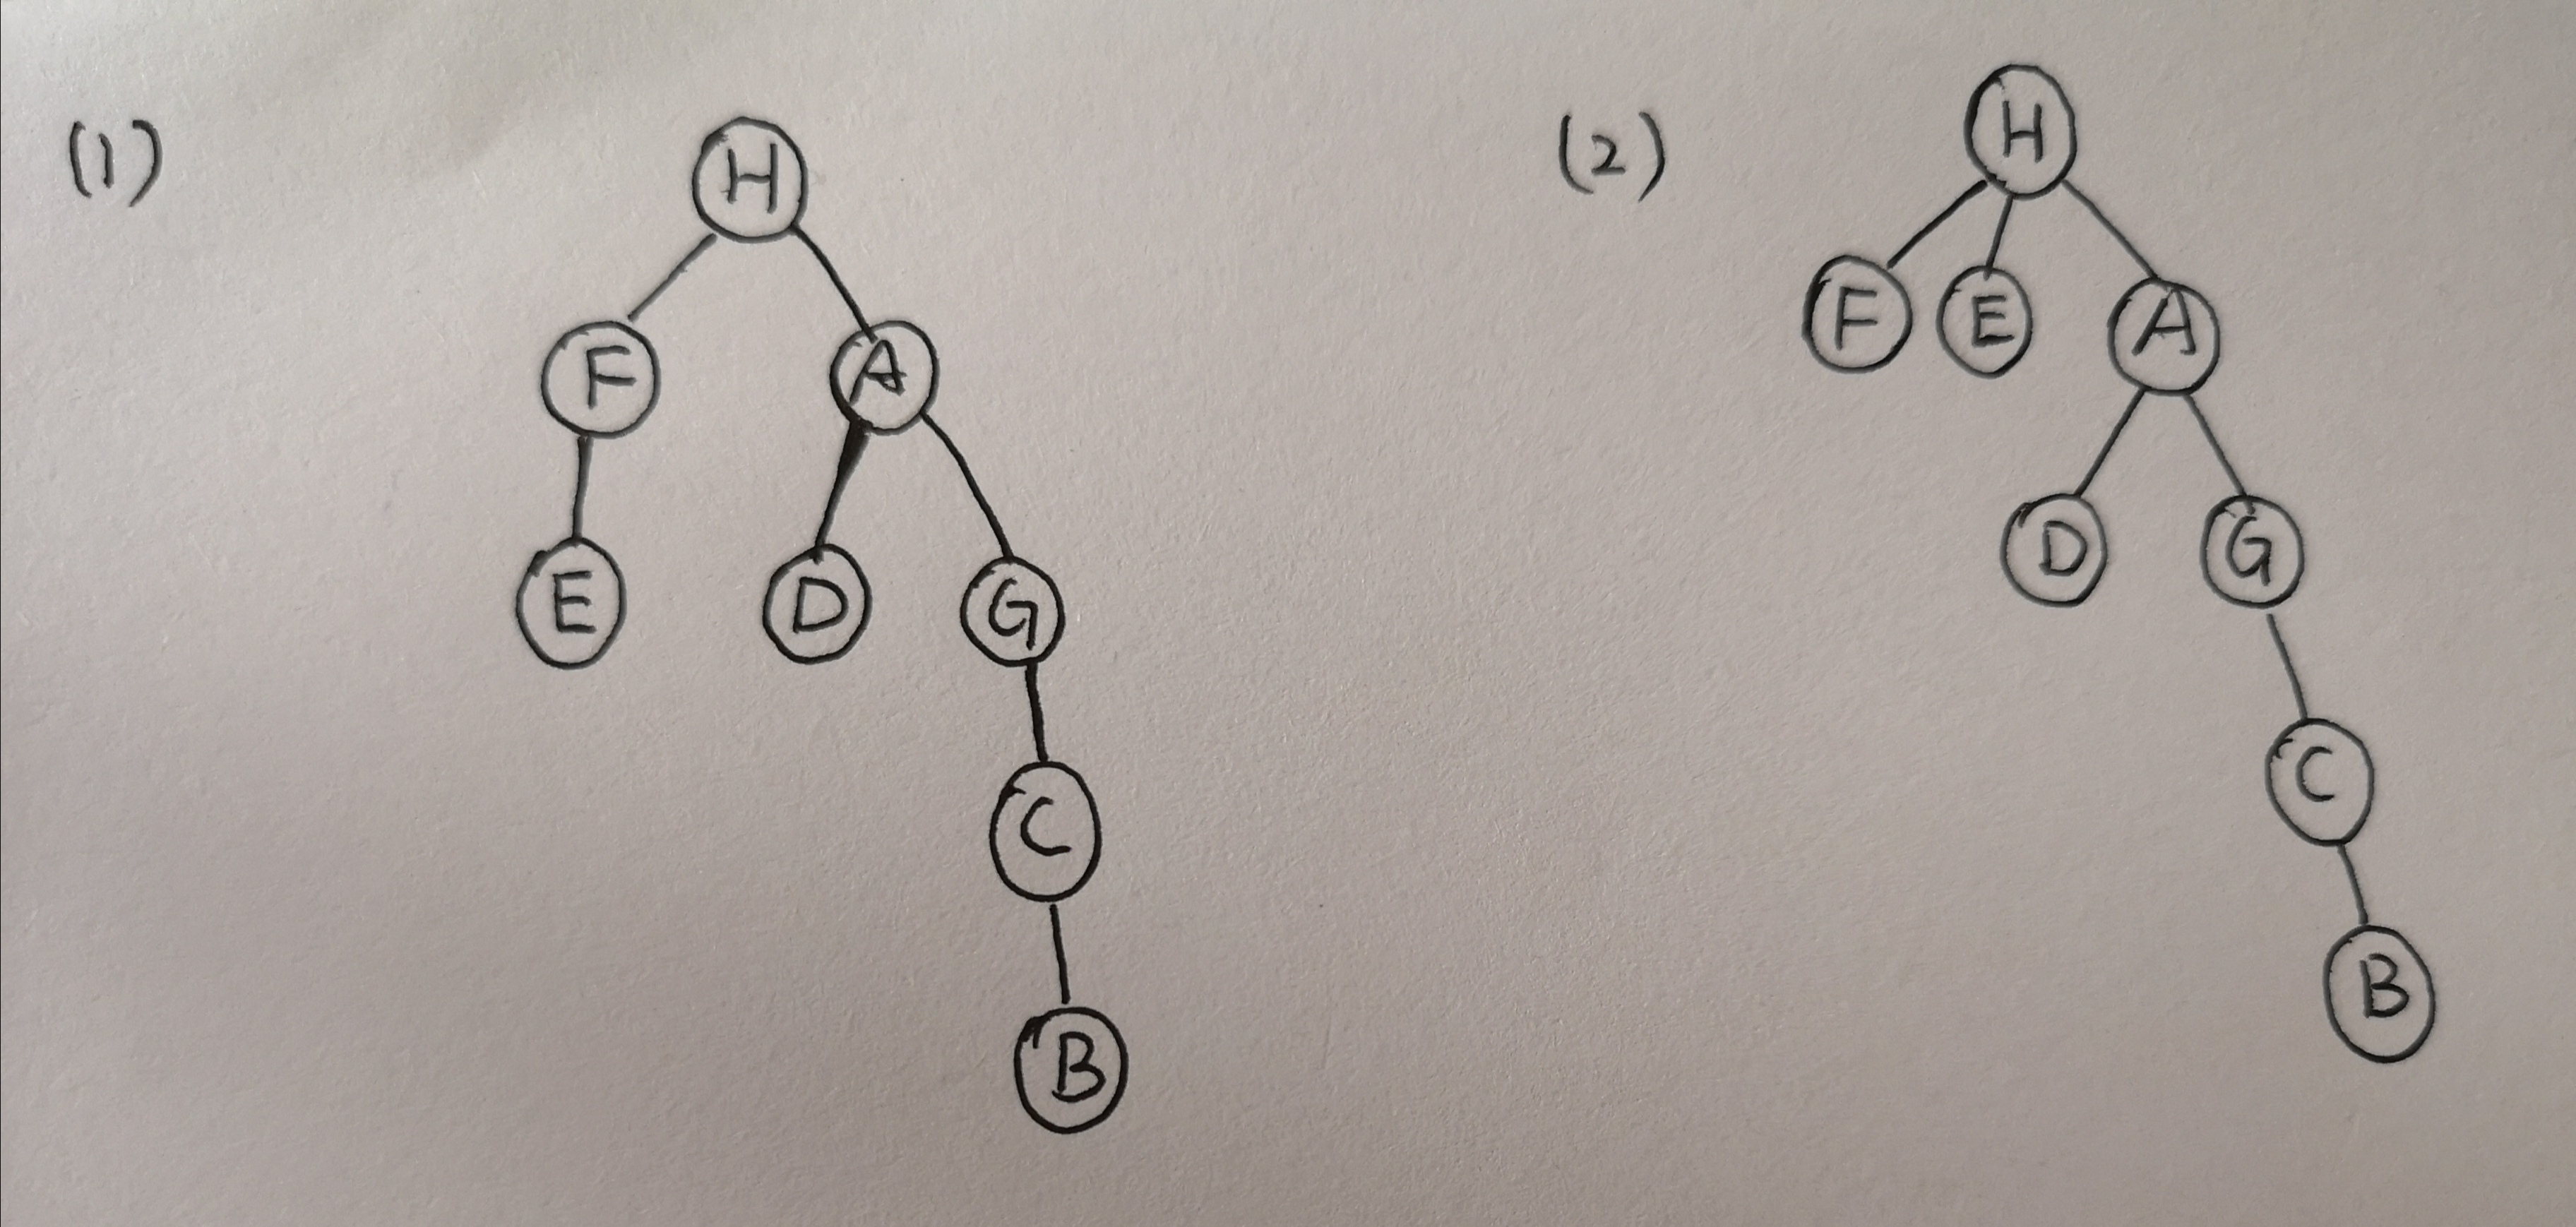 (1)
H
F A
E D G
C
B
(2)
H
F E A
D G
C
B